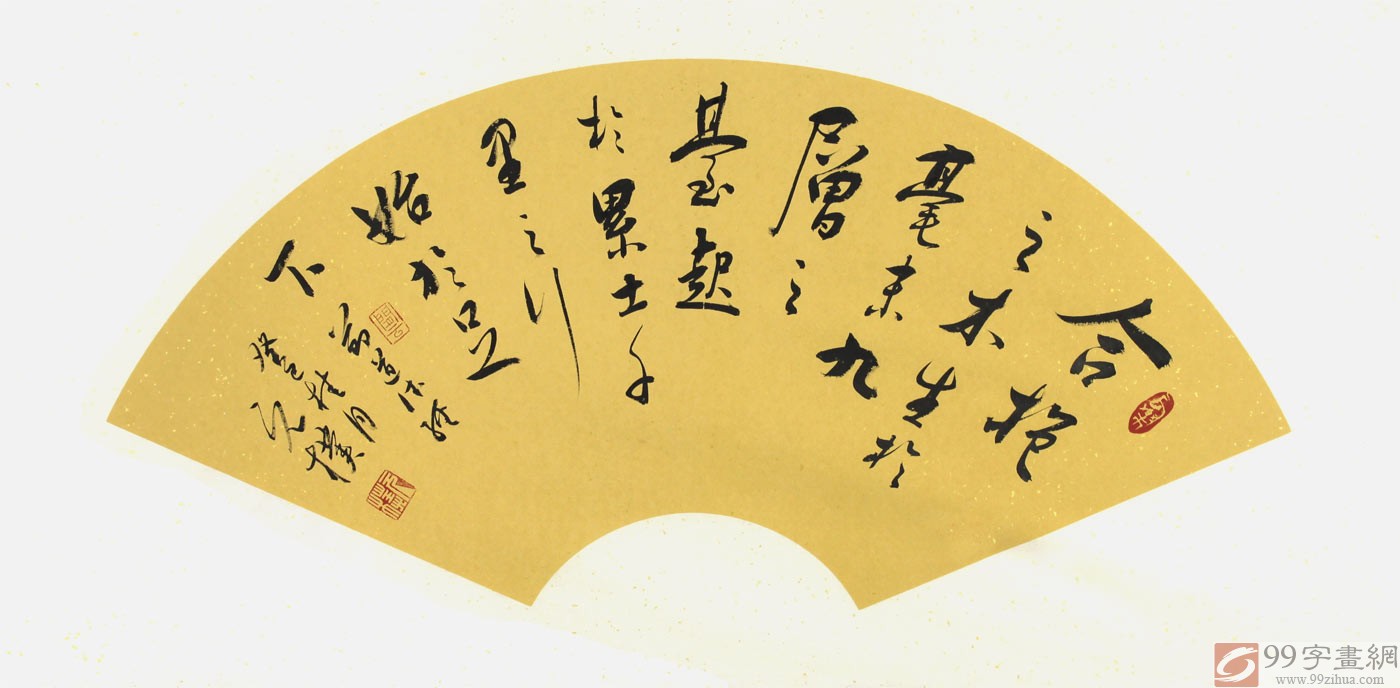 合抱
之木生於
毫末九
層之
臺起
於累土千
里之行
始於足
下
道德經
癸巳桂月
99字畫網
www.99zihua.com